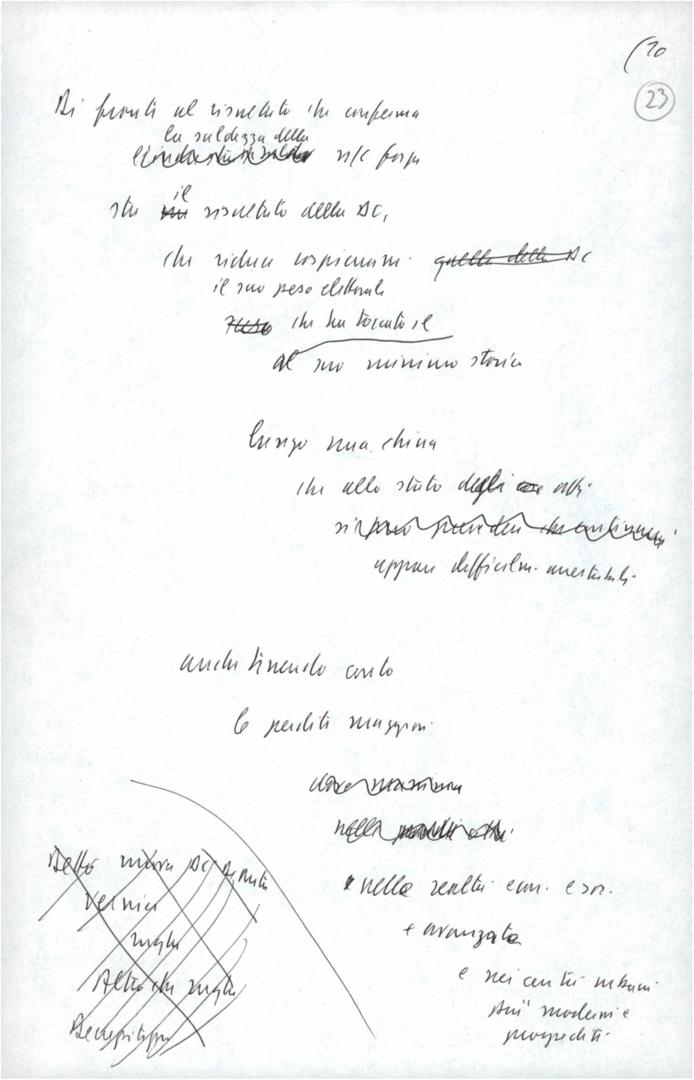 (10
23
Di fronte al risultato che conferma
la saldezza della
n/s forza
sta il risultato della DC,
che riduce cospicuam. quella della DC
il suo peso elettorale
Peso che ha toccato il
al suo minimo storico
lungo una china
che allo stato degli atti
appare difficilm. arrestabile
anche tenendo conto
le perdite maggiori
dove
nelle
nelle realtà econ. e soc.
+ avanzate
e nei centri urbani
più moderni e
progrediti
nuova DC
Vernice
rughe
Altro che rughe